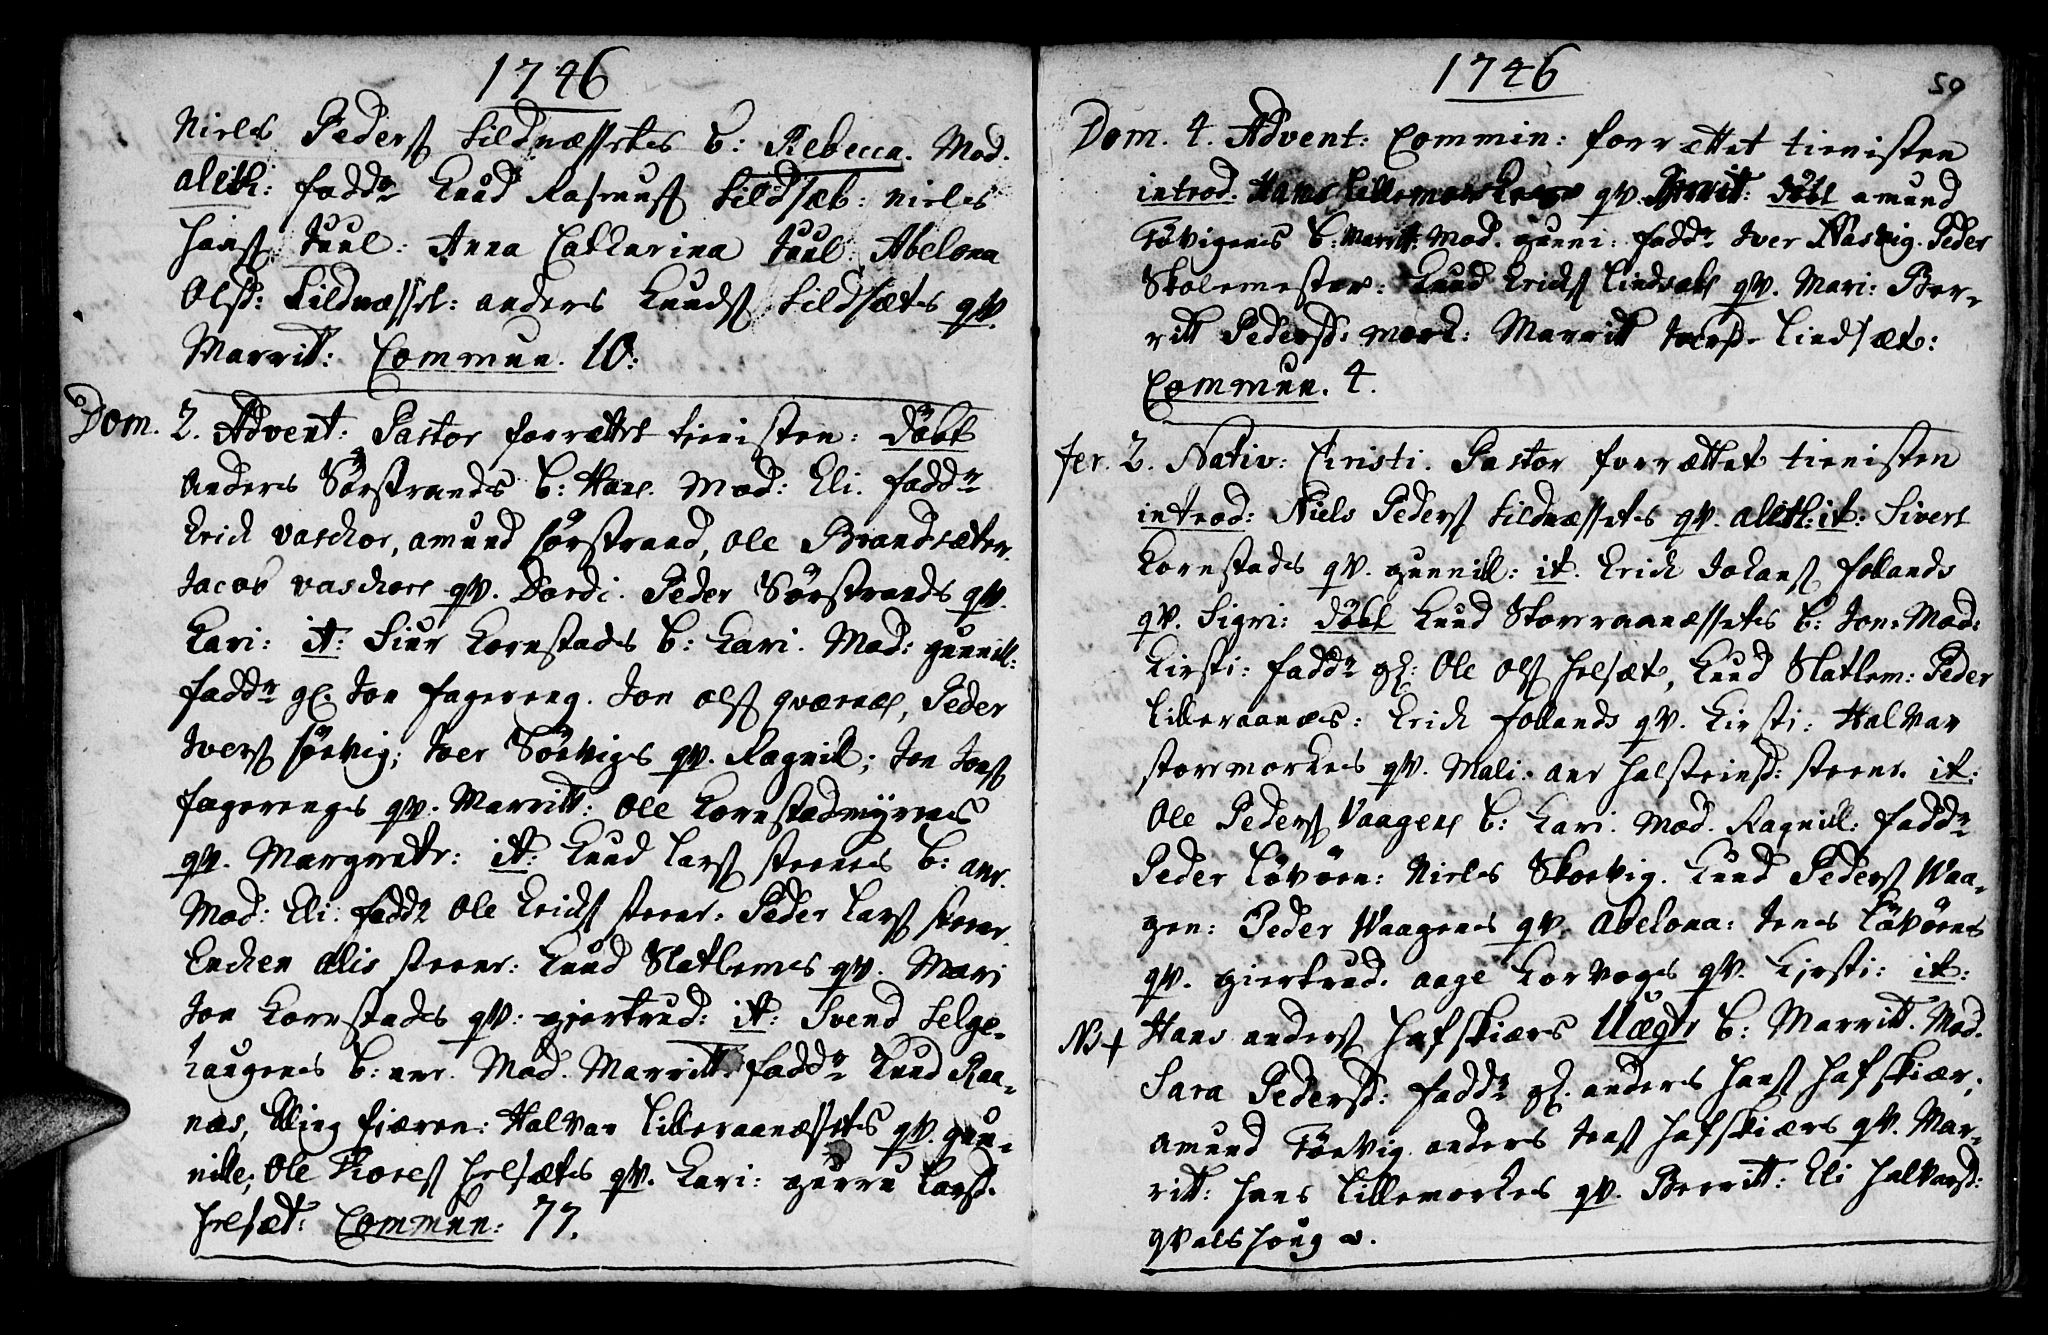 1746
Niels Peders Sildnæssets b: Rebecca. Mod.
aleth: fadd Knud Rasmus Sildsæt: Niels
Hans Juul: Anna Catharina Juul: Abelona
Olsd: Sildnæsset: anders Knuds Sildsæts qv.
Marritt: Commun. 10:
Dom. 2. Advent: Pastor forrættet tienisten: döbt
Anders Sörstrands b: Hans. Mod: Eli. fadd
Erich vaschor, amund Sörstrand, Ole Brandsæter.
Jacob vaschors qv. Dordi. Peder Sörstrands qv.
Kari: it: Siur Kornstads b: Kari. Mod: gunnil:
fadd gl. Jon fagereng. Jon ols qvernes, Peder
Ivers Sörvig; Iver Sörvigs qv. Ragnil; Jon Jons
fagerengs qv. Marritt: Ole Kornstadmyrens
qv. Margrete: it: Knud Lars steenes b: ane.
Mod: Eli: fadd Ole Erichs steene: Peder Lars steene.
Enchen Alis steene: Knud Slatlemes qv. Mari
Jon Kornstads qv: giertrud: it: Svend Helge-
haugens b: ane. Mod. Marritt. fadd Knud Raa-
næs, Elling fiæren: Halvar Lilleraanæssets qv. gun-
nille; Ole Thores Helsæts qv. Kari: gurru Larsd.
Helsæt: Commun: 77.
1746
50
Dom. 4. Advent: Commin: forrættet tienisten
introd. Hans Lillemorkens qv. Berrit: döbt amund
Tövigens b: Marrit: Mod. gunni: fadd Iver Nasvig. Peder
Skolemester: Knud Erichs Lindsæt qv. Mari: Ber-
ritt Pedersd: mork: Marritt Iversd. Lindsæt:
Commun. 4.
fer. 2. Nativ: Christi. Pastor forrættet tienisten
introd: Niels Peders Sildnæssets qv. aleth: it: Sivert
Kornstads qv. gunnill: it. Erich Johans follands
qv. Sigri: döbt Knud Storraanæssets b: Jon: Mod:
Kirsti: fadd gl: Ole Ols Helsæt, Knud Slatlem: Peder
Lilleraanæs: Erich follands qv. Kirsti: Halvar
stormorkens qv. Mali. ane Halsteinsd: steene. it:
Ole Peders Vaagens b: Kari. Mod. Ragnill: fadd
Peder Lövöen: Niels Skorvig. Knud Peders Waa-
gen: Peder Waagens qv. Abelona: Jens Lövöens
qv. giertrud. aage Korvogs qv. Kirsti: it:
NB + Hans anders Hafskiærs Uægte b: Marritt. Mod.
Sara Pedersd: fadd gl. anders Hans Hafskiær,
amund Törvig anders Jens Hafskiærs qv. Mar-
ritt: Hans Lillemorkens qv. Berritt: Eli Halvarsd:
qvalshoug.